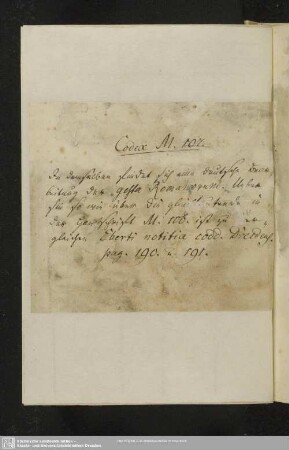 Codex M. 107.
In demselben findet sich eine deutsche Bear-
beitung der gesta Romanorum. Ueber
sie so wie über die gleichlautende in
der Handschrift M. 106. ist zu ver-
gleichen Eberti notitia codd. Dresdens.
pag. 190. u. 191.